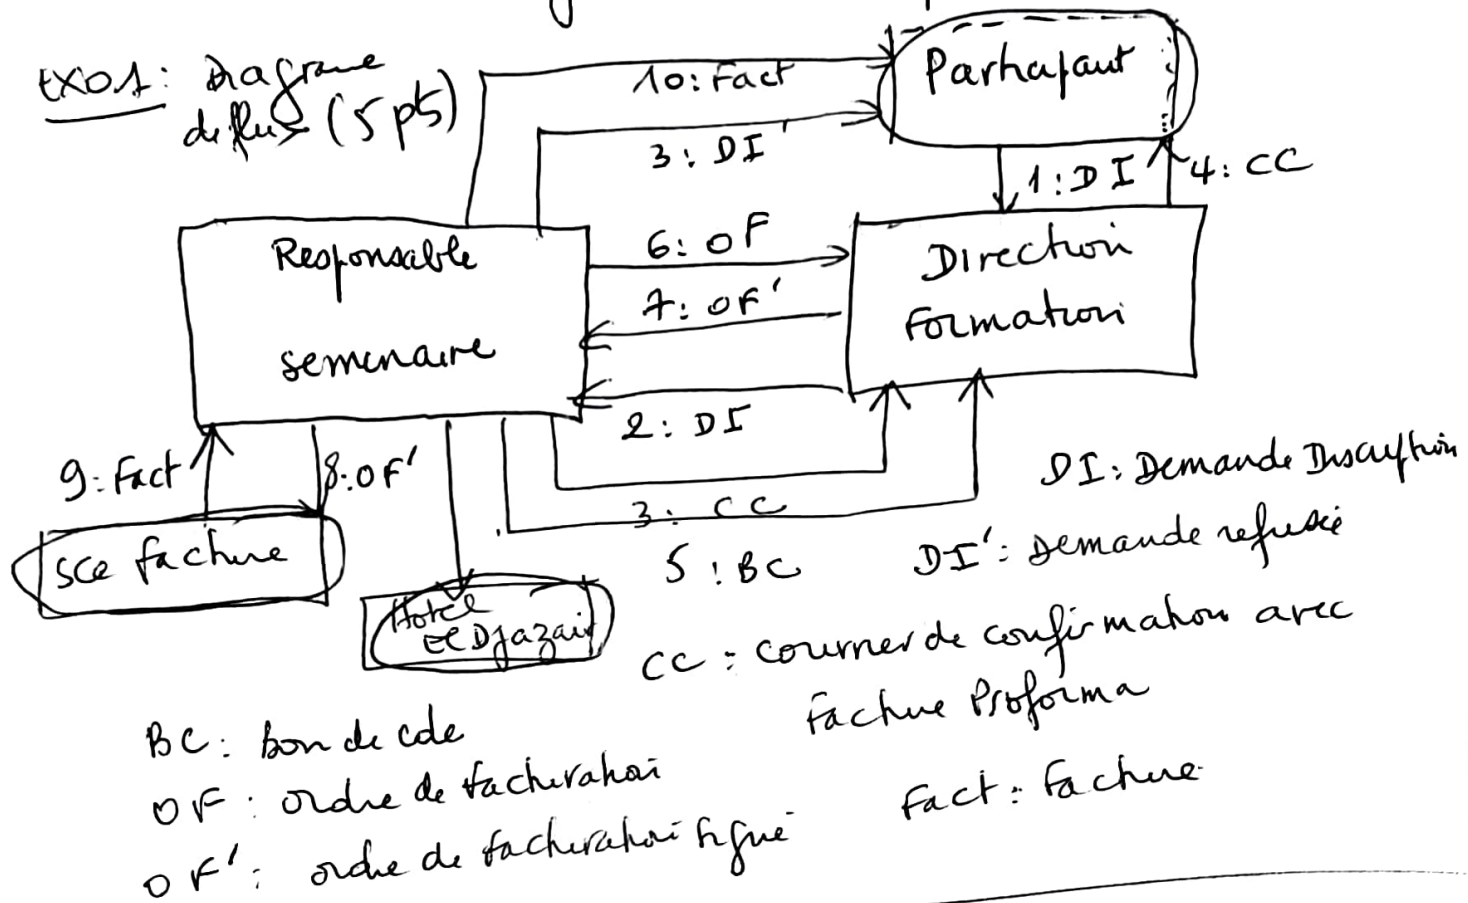 EXO1: Diagrame
de flux (5 pts)
10: Fact
Participant
3: DI'
1: DI
4: CC
Responsable
seminaire
6: OF
7: OF'
2: DI
Direction
Formation
9: Fact
8: OF'
3: CC
5: BC
Sce facture
Hotel
El Djazair
DI: Demande Inscription
DI': Demande refusée
CC: courrier de confirmation avec
Facture Proforma
BC: bon de cde
OF: ordre de facturation
Fact: Facture
OF': ordre de facturation signé